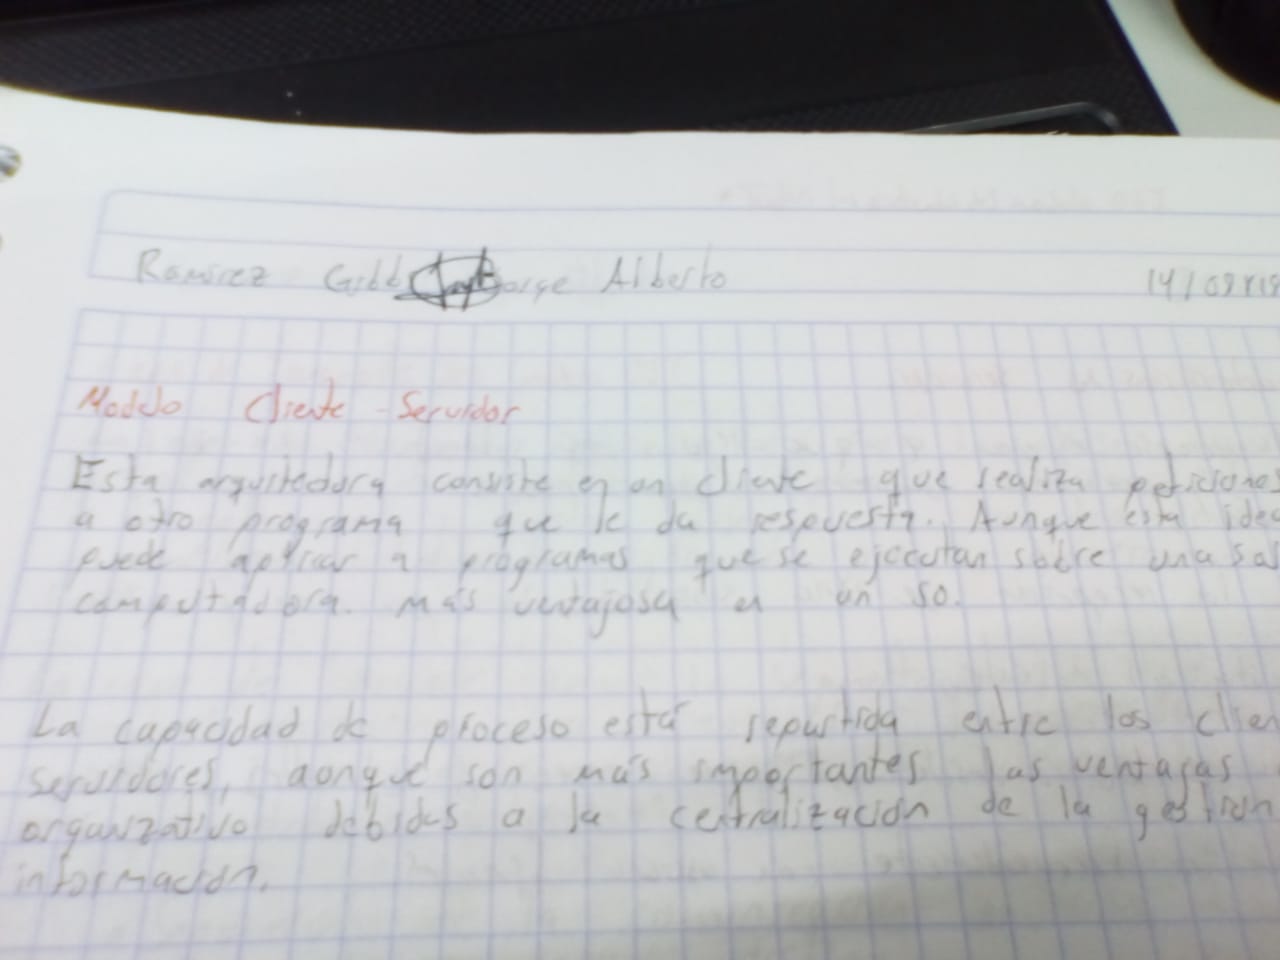 Ramirez Jorge Alberto
Modelo Cliente - Servidor
Esta arquitectura consiste en un cliente que realiza peticiones
a otro programa que le da respuesta. Aunque esta idea
puede aplicar a programas que se ejecutan sobre una
computadora. más ventajosa en un so.
La capacidad de proceso está repartida entre los
servidores, aunque son más importantes las ventajas
organizativo debidas a la centralización de la gestion
información.